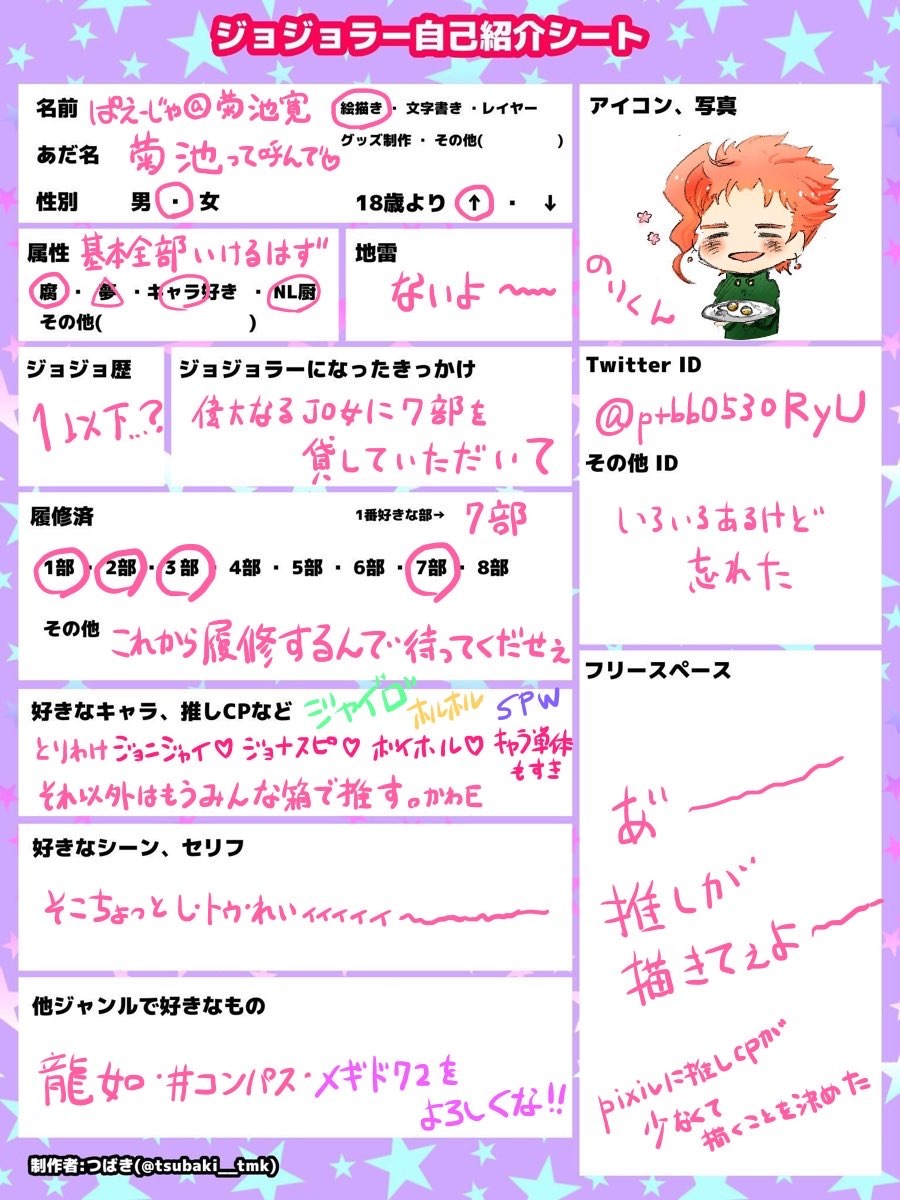 ジョジョラー自己紹介シート
名前 ぱえーじゃ@菊池寛
絵描き・文字書き・レイヤー
グッズ制作・その他( )
あだ名 菊池って呼んで♡
性別 男・女
18歳より ↑・↓
アイコン、写真
のりくん
属性 基本全部いけるはず
腐・夢・キャラ好き・NL厨
その他( )
地雷
ないよ〜〜
ジョジョ歴
1以下…?
ジョジョラーになったきっかけ
偉大なるJO女に7部を
貸していただいて
Twitter ID
@ptbb0530RyU
その他 ID
いろいろあるけど
忘れた
履修済
1番好きな部→ 7部
1部・2部・3部・4部・5部・6部・7部・8部
その他 これから履修するんで待ってくだせぇ
好きなキャラ、推しCPなど ジャイロ ホルホル SPW
とりわけ ジョニジャイ♡ ジョナスピ♡ ボイホル♡ キャラ単体
もすき
それ以外はもうみんな箱で推す。かわE
好きなシーン、セリフ
そこちょっとし・トゥ・れいィィィィィ〜〜
他ジャンルで好きなもの
龍如・#コンパス・メギド72を
よろしくな!!
フリースペース
あ゛〜〜
推しが
描きてぇよ〜〜
pixiʋに推しcpが
少なくて
描くことを決めた
制作者:つばき(@tsubaki__tmk)